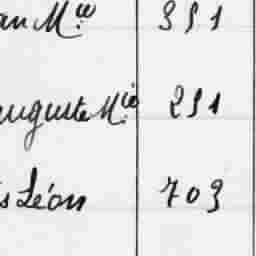 an Mce 351
auguste Mie 251
s Léon 703